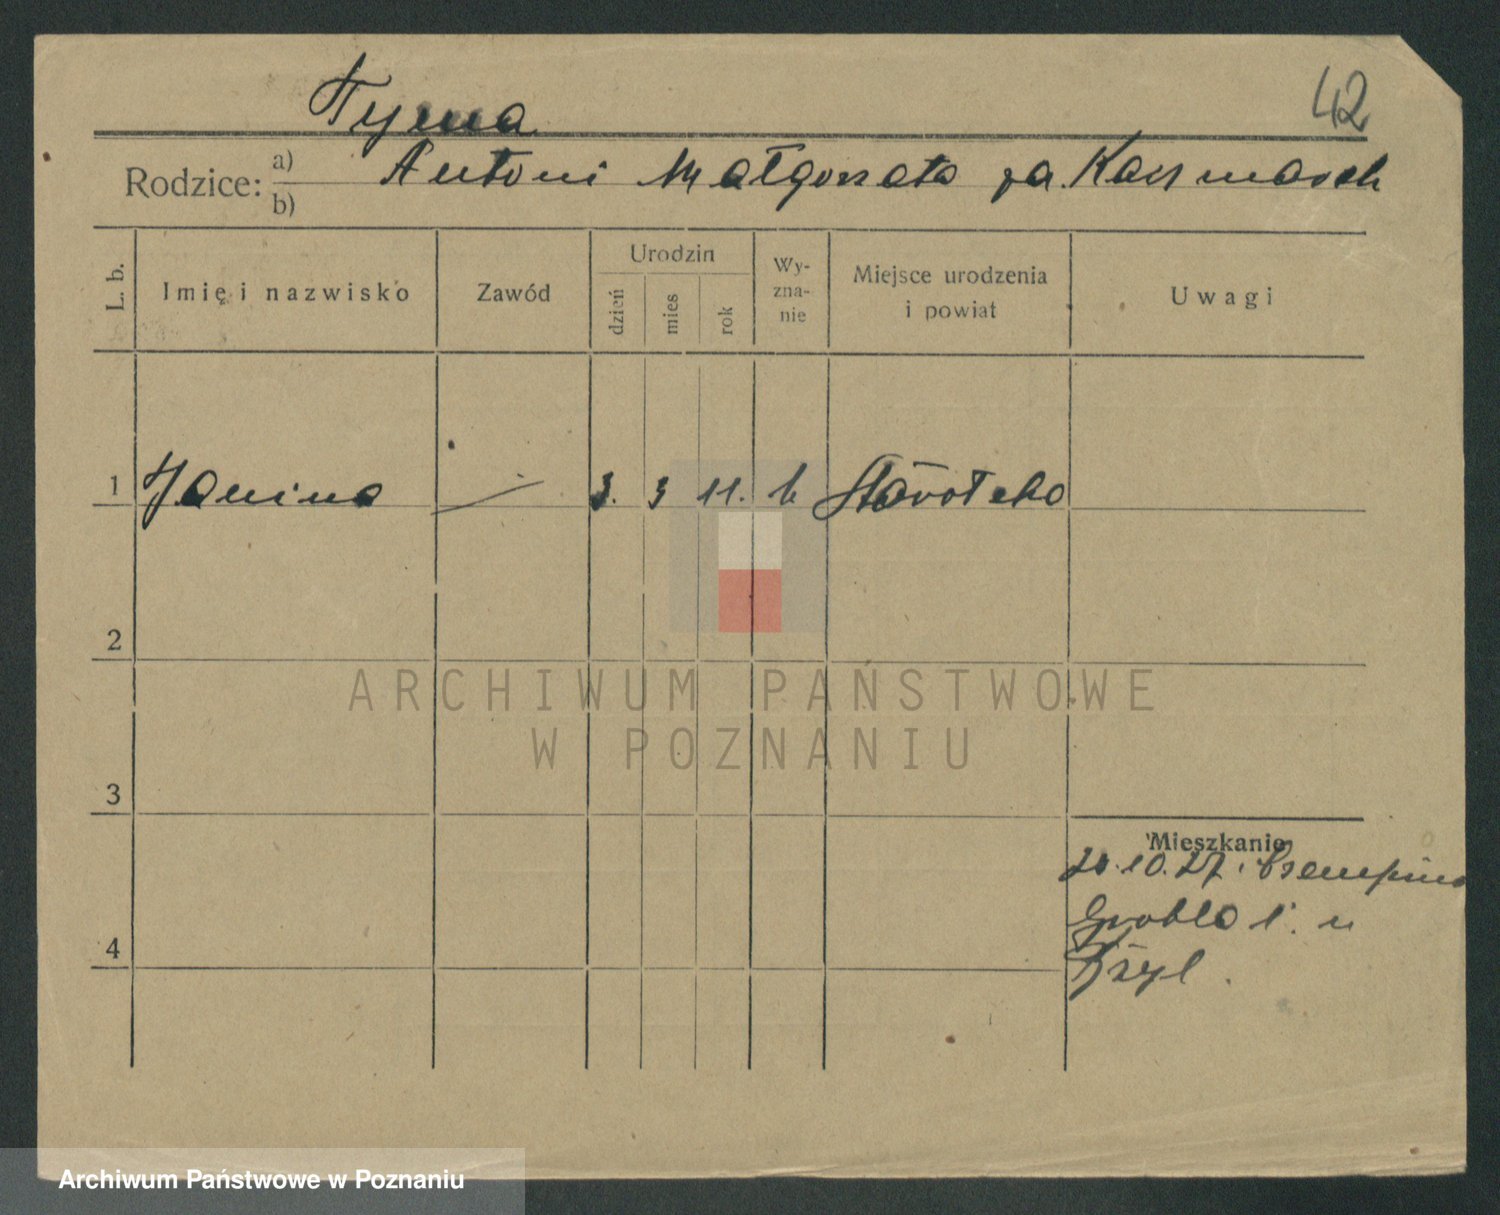 42
Tyma
Rodzice: a) Antoni Małgorzata za. Kaczmarek
b)
L. b. Imię i nazwisko Zawód Urodzin dzień mies rok Wyzna-nie Miejsce urodzenia i powiat Uwagi
1 Janina — 3. 3 11. k Starołeka
2
3
4
Mieszkanie
10. 27. Czempiną
Grobla 1. u
ARCHIWUM PAŃSTWOWE
W POZNANIU
Archiwum Państwowe w Poznaniu